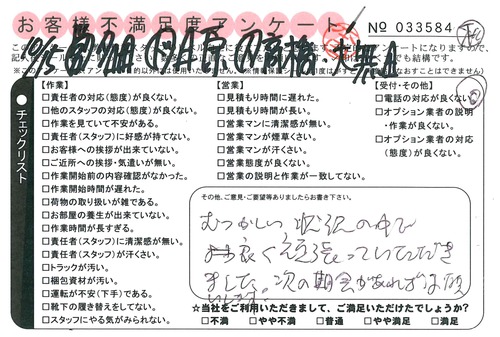 お客様不満足度アンケート
№ 033584
【作業】
□責任者の対応(態度)が良くない。
□他のスタッフの対応(態度)が良くない。
□作業を見ていて不安がある。
□責任者(スタッフ)に好感が持てない。
□お客様への挨拶が出来ていない。
□ご近所への挨拶・気遣いが無い。
□作業開始前の内容確認がなかった。
□作業開始時間が遅れた。
□荷物の取り扱いが雑である。
□お部屋の養生が出来ていない。
□作業時間が長すぎる。
□責任者(スタッフ)に清潔感が無い。
□責任者(スタッフ)が汗くさい。
□トラックが汚い。
□梱包資材が汚い。
□運転が不安(下手)である。
□靴下の履き替えをしてない。
□スタッフにやる気がみられない。
【営業】
□見積もり時間に遅れた。
□見積もり時間が長い。
□営業マンに清潔感が無い。
□営業マンが煙草くさい。
□営業マンが汗くさい。
□営業態度が良くない。
□営業の説明と作業が一致してない。
【受付・その他】
□電話の対応が良くない。
□オプション業者の説明・作業が良くない。
□オプション業者の対応(態度)が良くない。
チェックリスト
その他、ご意見・ご要望等ありましたらお書き下さい。
むつかしい状況の中で
良く頑張っていただき
ました。次の機会があればお願
いします。
★当社をご利用いただきまして、ご満足いただけたでしょうか?
□不満 □やや不満 □普通 □やや満足 □満足